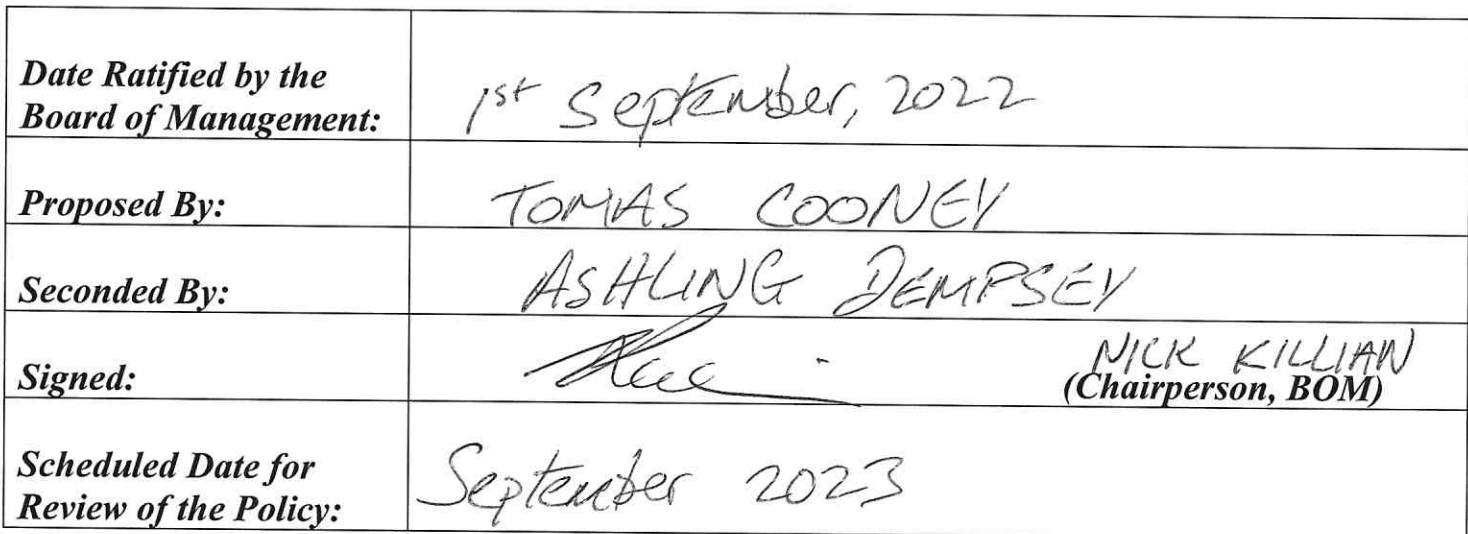 Date Ratified by the
Board of Management: 1st September, 2022
Proposed By: TOMAS COONEY
Seconded By: ASHLING DEMPSEY
Signed: NICK KILLIAN
(Chairperson, BOM)
Scheduled Date for
Review of the Policy: September 2023